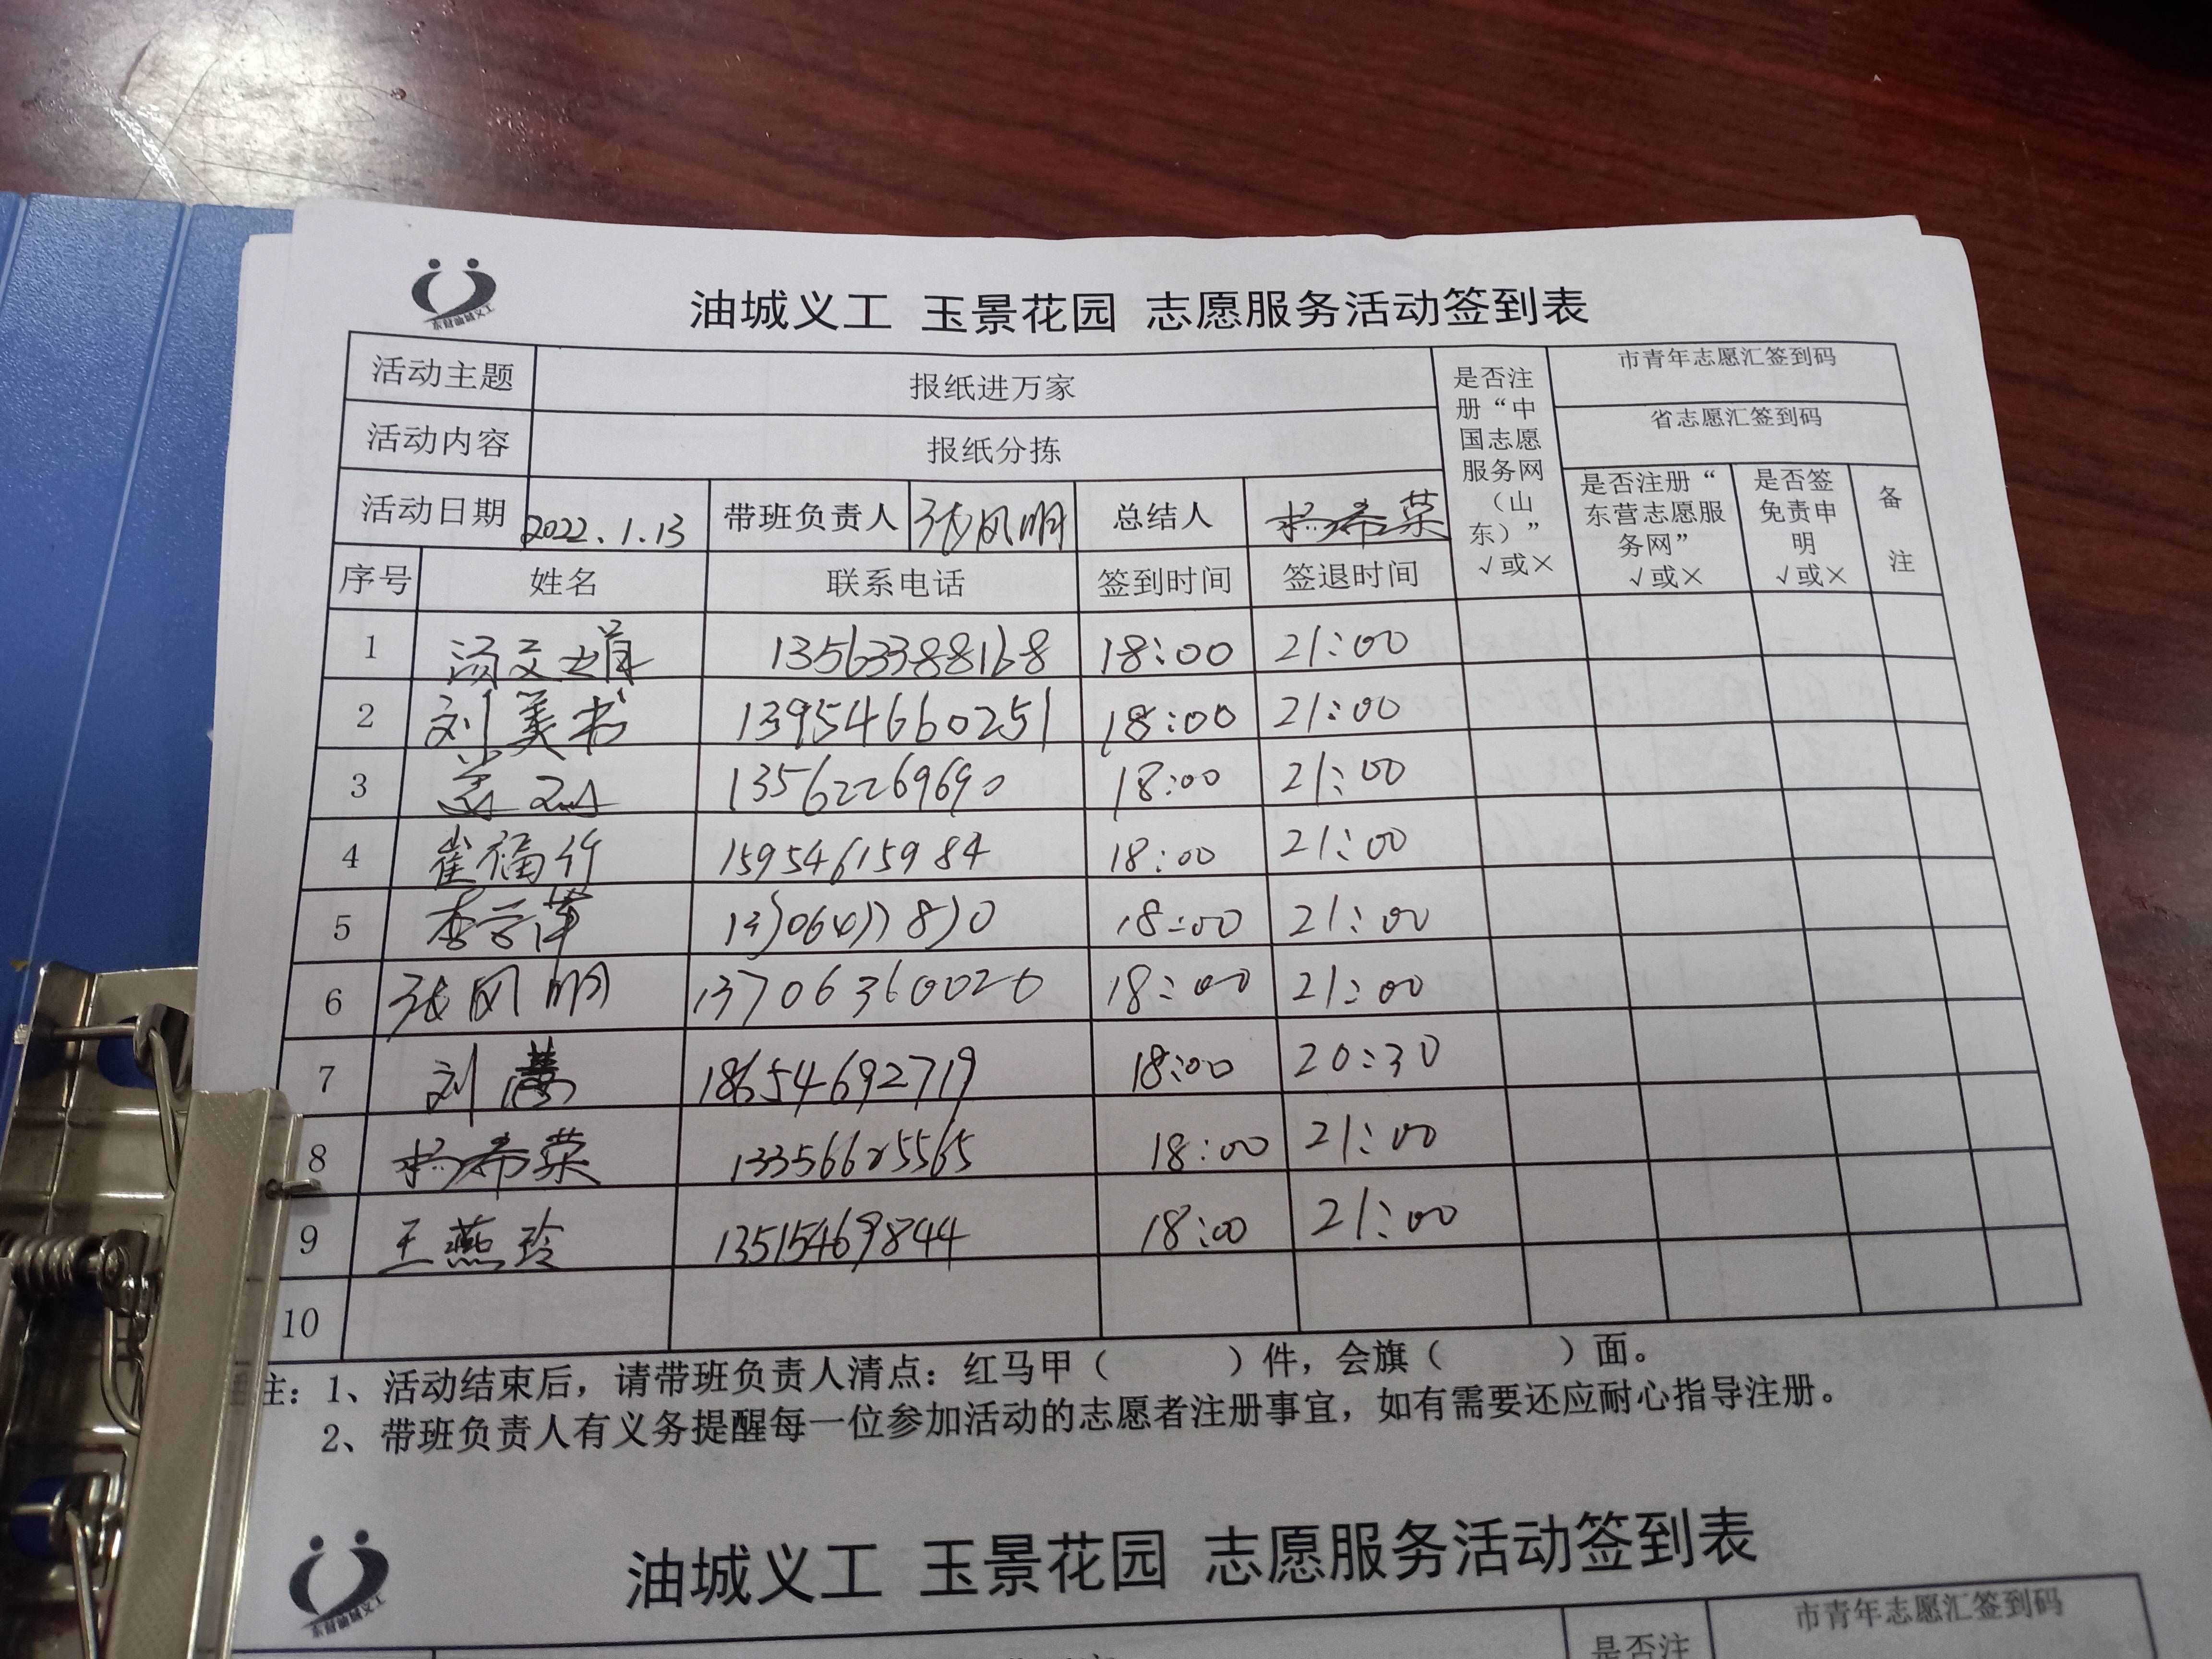 东营油城义工
油城义工 玉景花园 志愿服务活动签到表
活动主题 报纸进万家 是否注册“中国志愿服务网（山东）” √或× 市青年志愿汇签到码
活动内容 报纸分拣 省志愿汇签到码
活动日期 2022.1.13 带班负责人 张风明 总结人 杨希荣 是否注册“东营志愿服务网” √或× 是否签免责申明 √或× 备注
序号 姓名 联系电话 签到时间 签退时间
1 13563388168 18:00 21:00
2 刘美书 13954660251 18:00 21:00
3 13562269690 18:00 21:00
4 崔福竹 15954615984 18:00 21:00
5 18:00 21:00
6 张风明 13706360020 18:00 21:00
7 刘 18654692719 18:00 20:30
8 杨希荣 18:00 21:00
9 王燕玲 13515469844 18:00 21:00
10
注：1、活动结束后，请带班负责人清点：红马甲（ ）件，会旗（ ）面。
2、带班负责人有义务提醒每一位参加活动的志愿者注册事宜，如有需要还应耐心指导注册。
东营油城义工
油城义工 玉景花园 志愿服务活动签到表
市青年志愿汇签到码
是否注